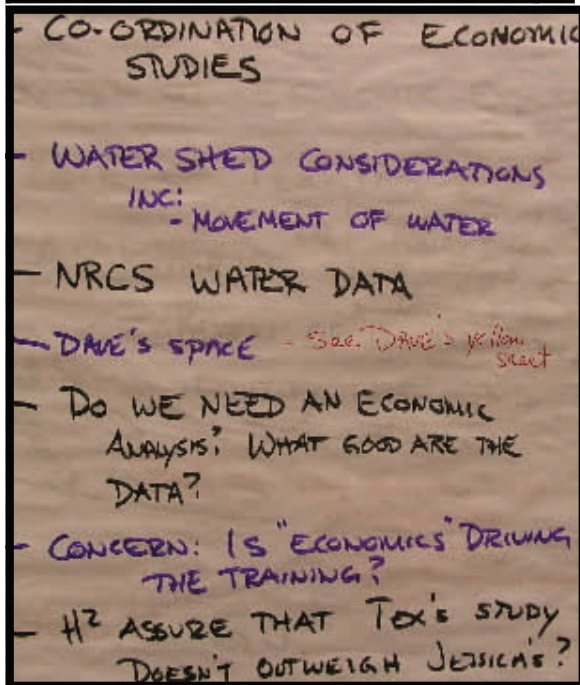 - CO-ORDINATION OF ECONOMIC
STUDIES
- WATER SHED CONSIDERATIONS
INC:
- MOVEMENT OF WATER
- NRCS WATER DATA
- DAVE'S SPACE - See "DAVE'S yellow
sheet
- DO WE NEED AN ECONOMIC
ANALYSIS? WHAT GOOD ARE THE
DATA?
- CONCERN: IS "ECONOMICS" DRIVING
THE TRAINING?
- H² ASSURE THAT TEX'S STUDY
DOESN'T OUTWEIGH JESSICA'S?